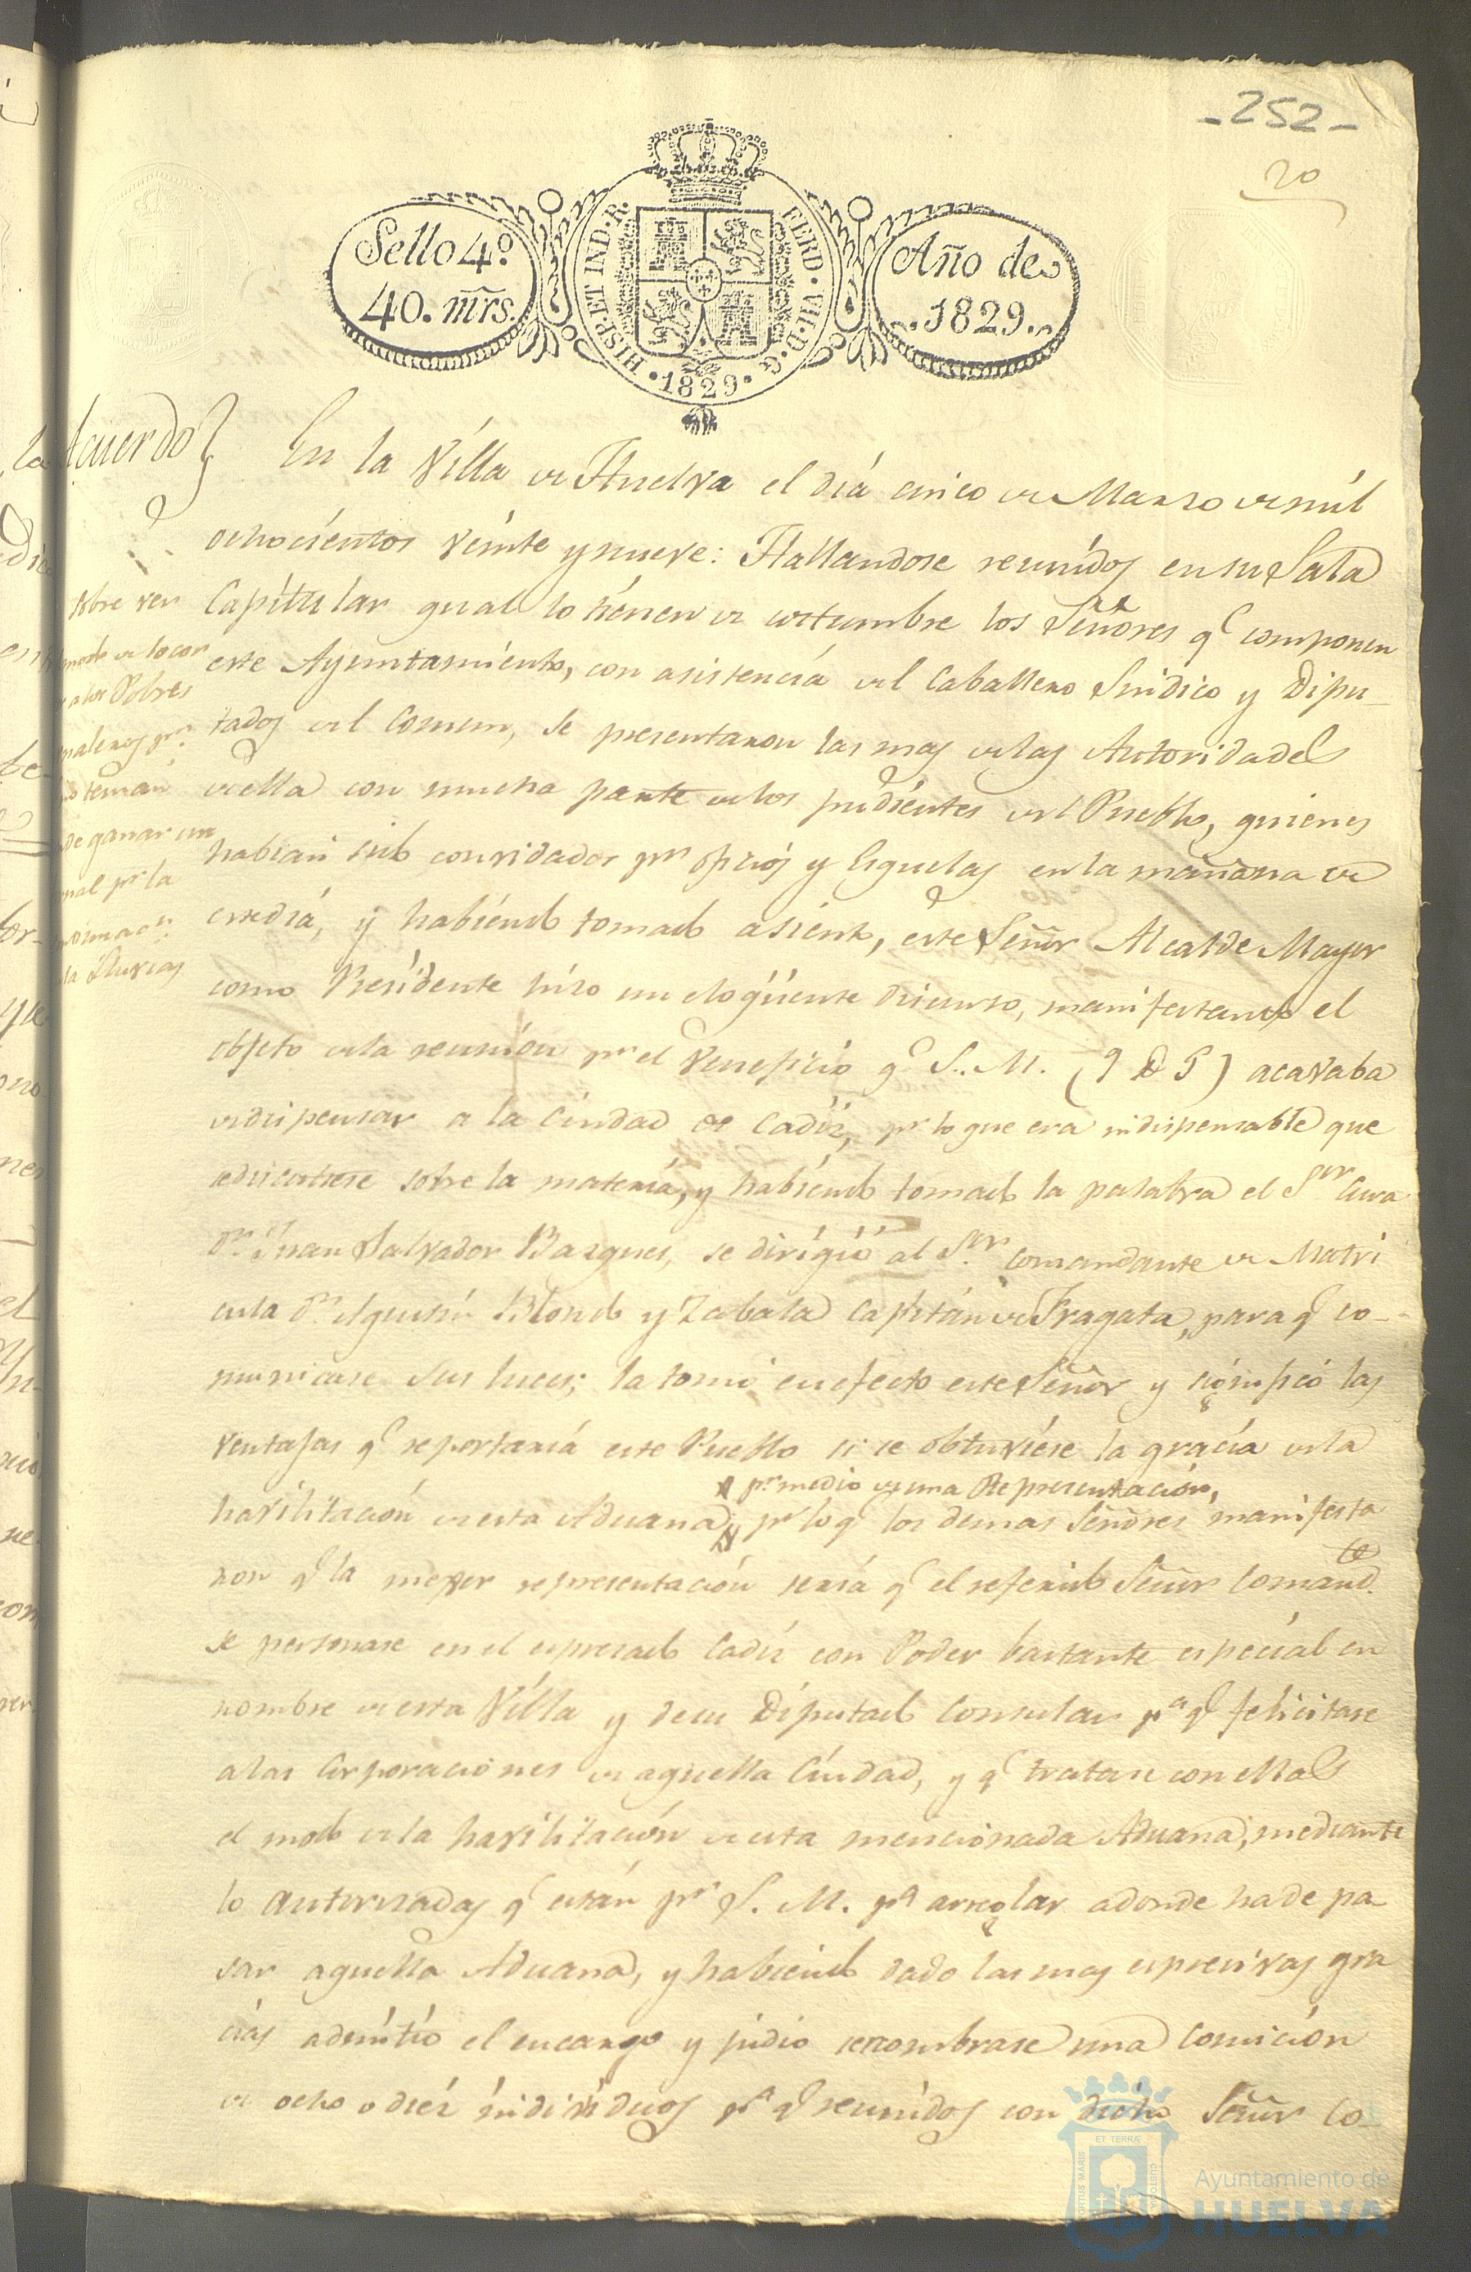 -252-
20
Sello 4º
40. mrs.
HISP. ET IND. R. FERD. VII. D. G.
1829
Año de
1829.
Acuerdo
En la Villa de Huelva el diá cinco de Marzo de míl
ochocientos veinte y nueve: Hallandose reunidos en su Sala
Capitular qual lo tienen de costumbre los Señores qe componen
este Ayuntamiento, con asistencia del Caballero Sindico y Dipu-
tados del Comun, se presentaron las mas de las Autoridades
de ella con mucha parte de los pudientes del Pueblo, quienes
habian sido convidados pr oficios y Esquelas en la mañana de
este diá, y habiendo tomado asiento, este Señor Alcalde Mayor
como Presidente hizo un eloqüente discurso, manifestando el
objeto de la reunión pr el veneficio qe S. M. (q D G) acavaba
de dispensar a la Ciudad de Cadiz, pr lo que era indispensable que
se discutiese sobre la materia, y habiendo tomado la palabra el Sor Cura
Dn Juan Salvador Bazques, se dirigió al Sor Comandante de Matri
cula Dn Agustin Blondo y Zabala Capitán de Fragata, para qe co-
municase sus luces; la tomó en efecto este Señor y significó las
ventajas qe reportaria este Pueblo si se obtuviese la gracia de la
pr medio de una Representación,
havilitación de esta Aduana, pr lo qe los demas Señores manifesta
ron qe la mejor representación seria qe el referido Señor Comandte
se personase en el espresado Cadiz con Poder bastante especial en
nombre de esta Villa y de su Diputado Consular pa qe felicitase
a las Corporaciones de aquella Ciudad, y qe tratase con ellas
el modo de la havilitación de esta mencionada Aduana, mediante
lo autorizadas qe están pr S. M. pa arreglar adonde ha de pa
sar aquella Aduana, y habiendo dado las mas espresivas gra
cias admitió el encargo y pidio se nombrase una Comición
de ocho o diéz individuos pa qe reunidos con dicho Señor Co-
sobre ven
de locor
a los Pobres
pr
tenian
de ganar un
pr la
la lluvias
ET TERRÆ
Ayuntamiento de
HUELVA